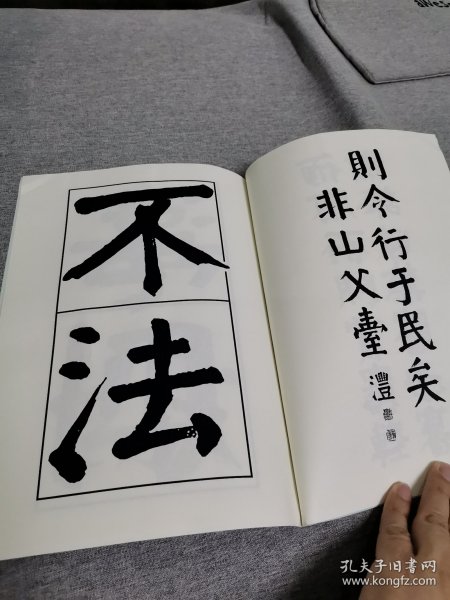 則令行于民矣
非山父臺 澧
不
法
孔夫子旧书网
www.kongfz.com